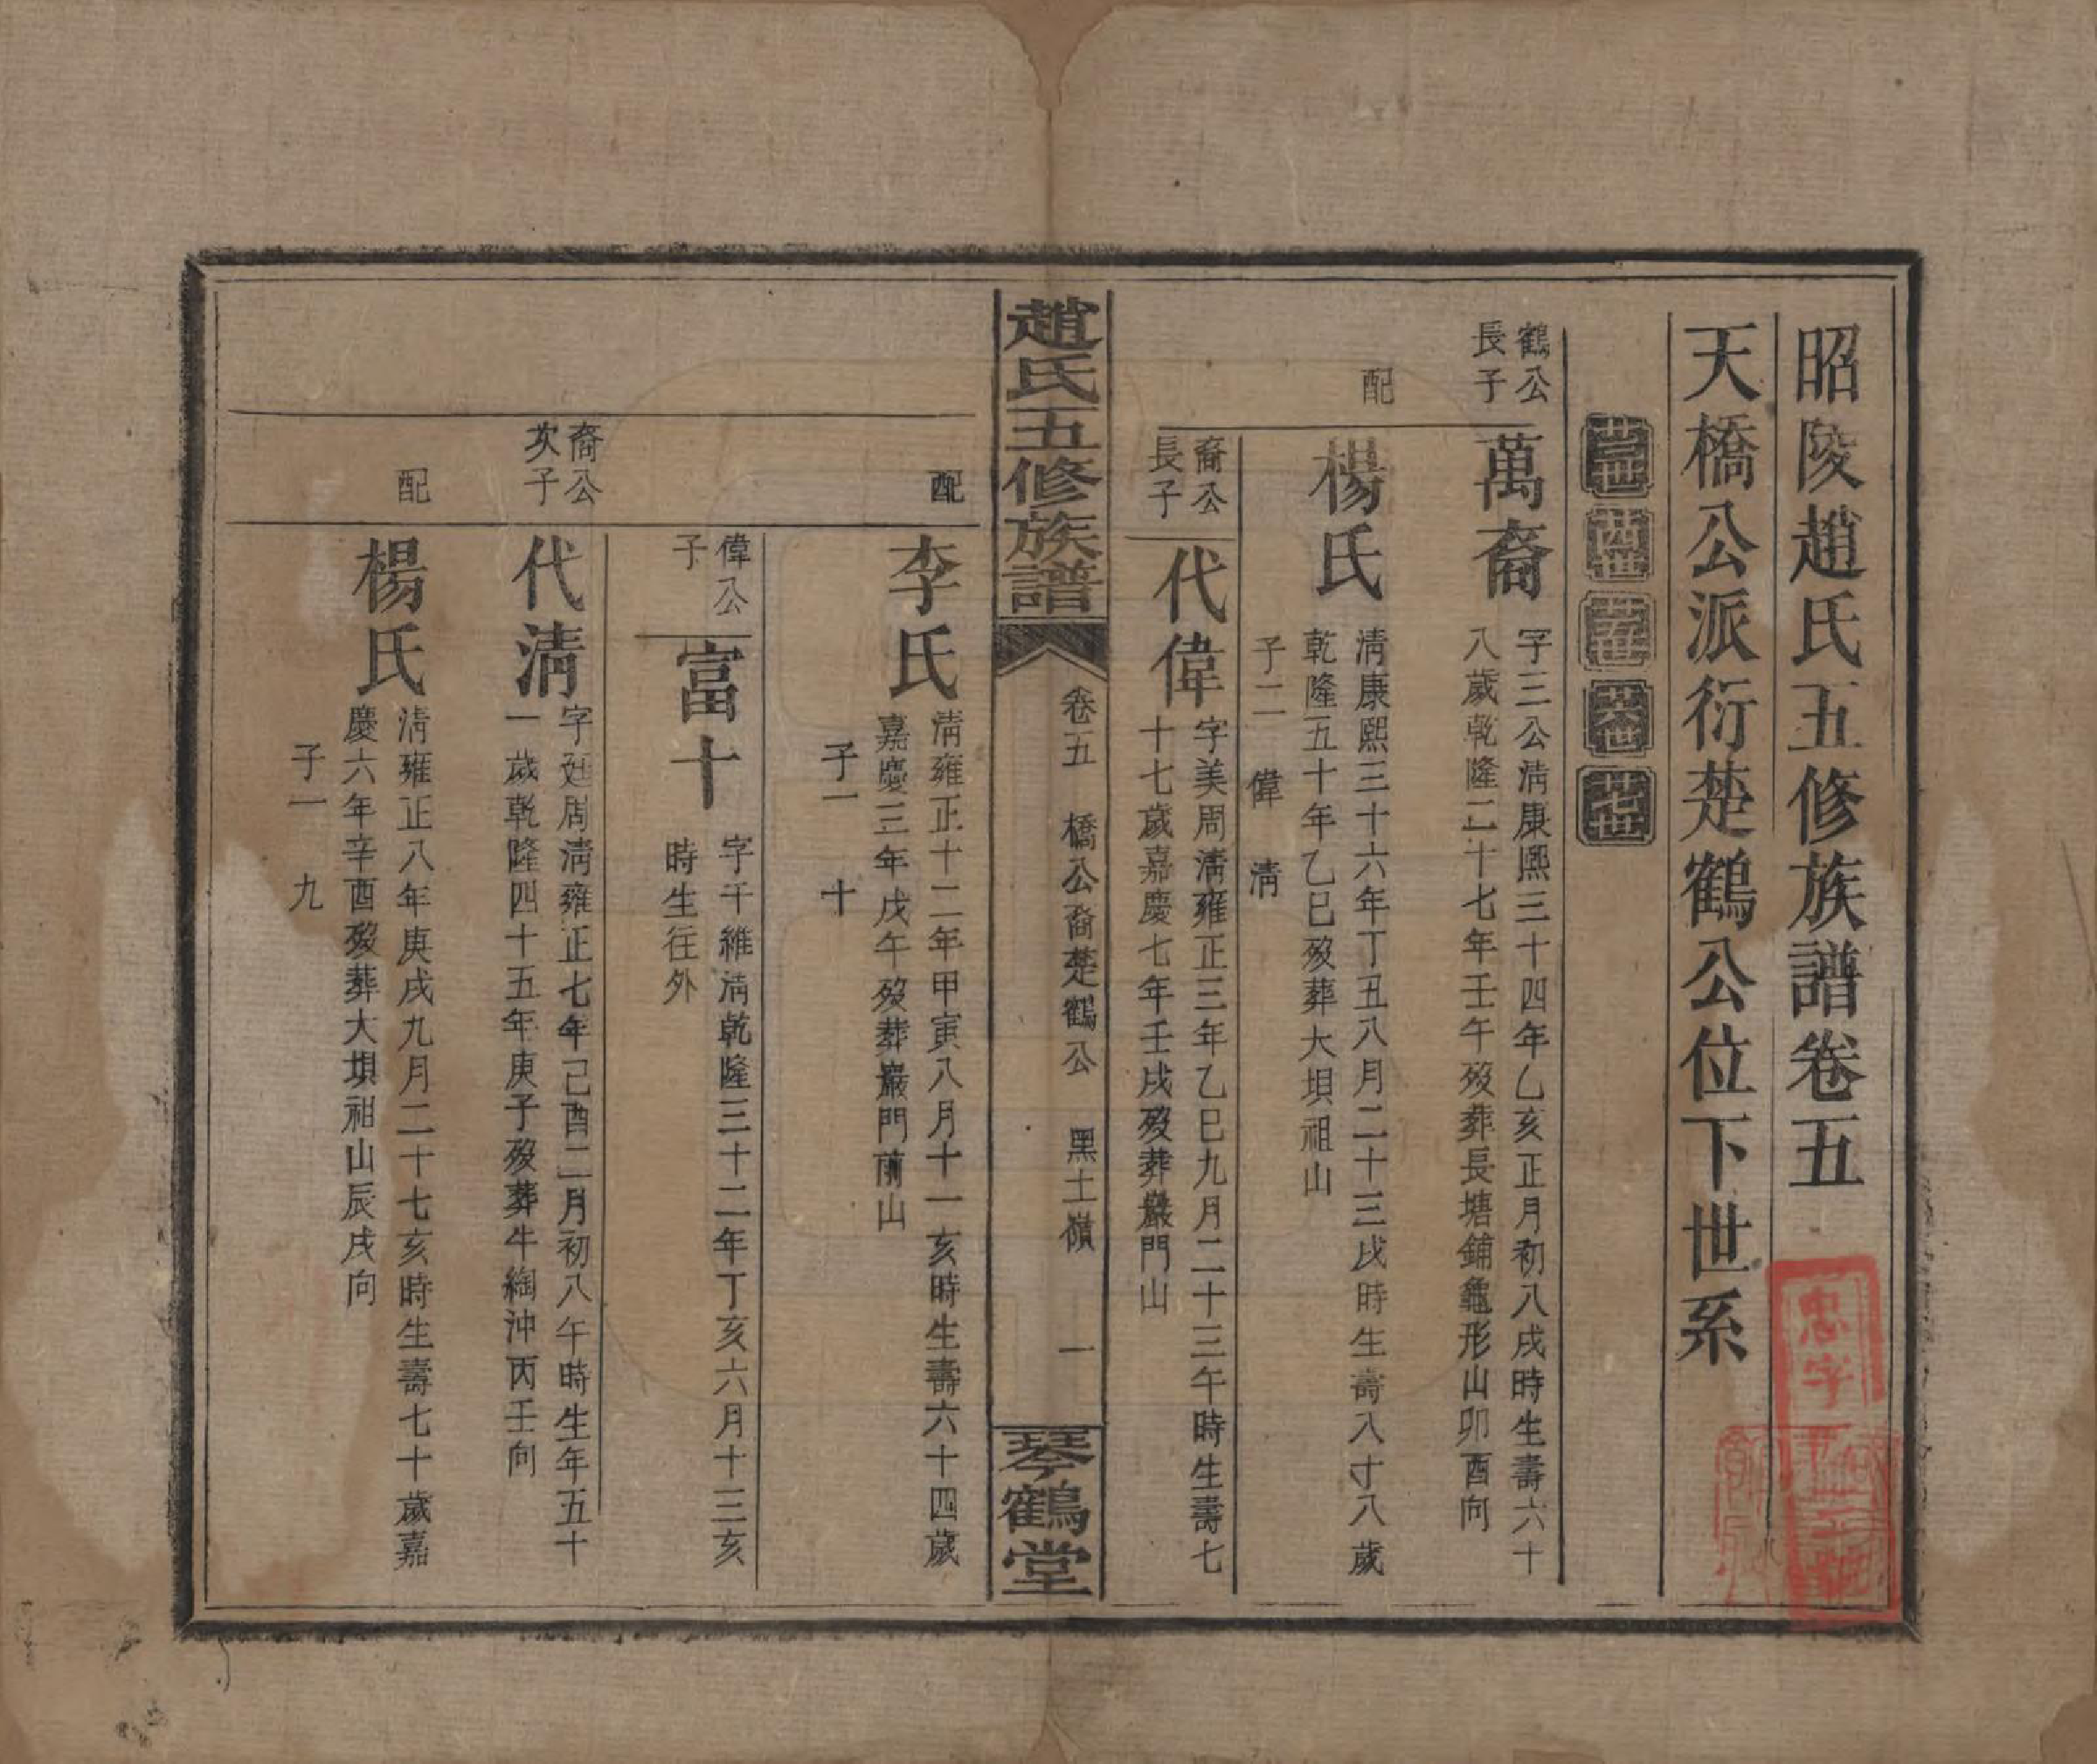 昭陵趙氏五修族譜卷五
天橋公派衍楚鶴公位下世系
廿三世
廿四世
廿五世
廿六世
廿七世
鶴公
長子
萬裔
字三公清康熙三十四年乙亥正月初八戌時生壽六十
八歲乾隆二十七年壬午歿葬長塘鋪龜形山卯酉向
配
楊氏
清康熙三十六年丁丑八月二十三戌時生壽八寸八歲
乾隆五十年乙巳歿葬大垻祖山
子二 偉 清
裔公
長子
代偉
字美周清雍正三年乙巳九月二十三午時生壽七
十七歲嘉慶七年壬戌歿葬巖門山
趙氏五修族譜
卷五 橋公裔楚鶴公 黑土嶺 一
琴鶴堂
配
李氏
清雍正十二年甲寅八月十一亥時生壽六十四歲
嘉慶三年戊午歿葬巖門前山
子一 十
偉公
子
富十
字千維清乾隆三十二年丁亥六月十三亥
時生往外
裔公
次子
代清
字廷周清雍正七年己酉二月初八午時生年五十
一歲乾隆四十五年庚子歿葬牛綯沖丙壬向
配
楊氏
清雍正八年庚戌九月二十七亥時生壽七十歲嘉
慶六年辛酉歿葬大垻祖山辰戌向
子一 九
忠字